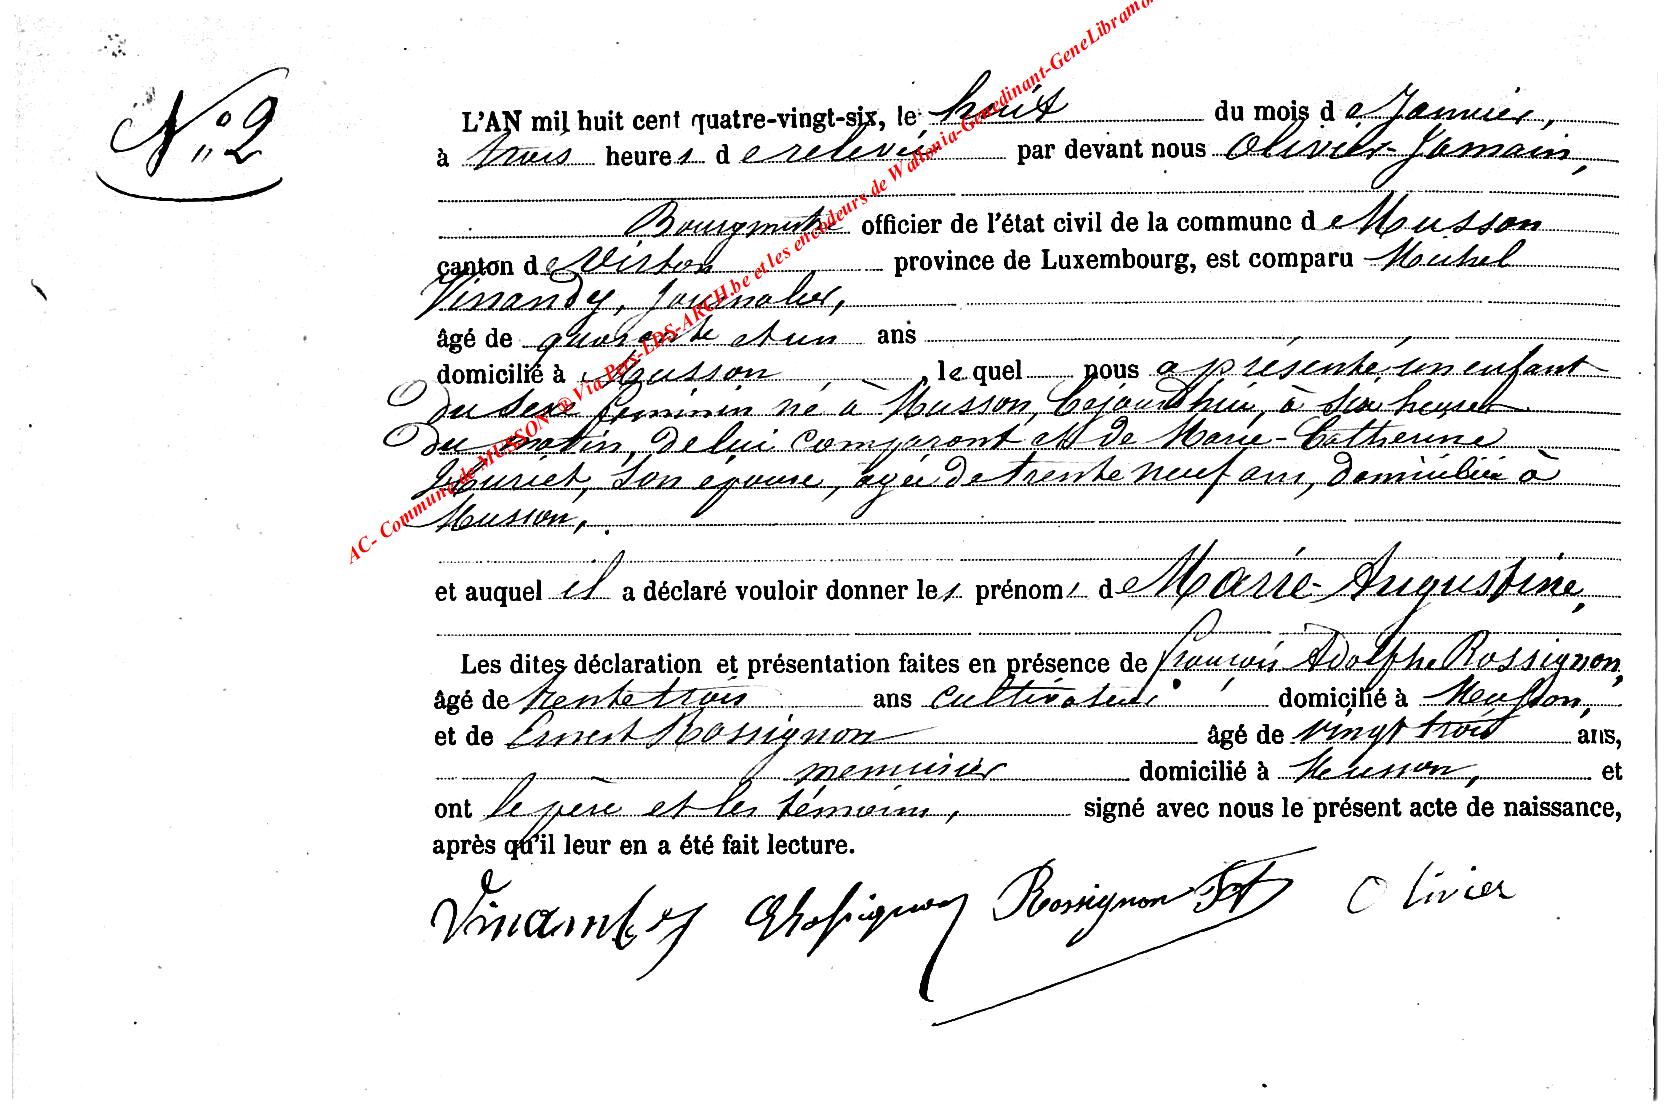 N° 2
L'AN mil huit cent quatre-vingt-six, le huit du mois de Janvier,
à trois heures de relevée par devant nous Olivier Jamain,
Bourgmestre officier de l'état civil de la commune de Musson
canton de Virton province de Luxembourg, est comparu Michel
Vinandy, Journalier,
âgé de quarante et un ans
domicilié à Musson, lequel nous a présenté un enfant
du sexe féminin né à Musson, Cejourd'hui, à six heures
du matin, de lui comparant et de Marie-Catherine
son épouse, agée de trente neuf ans, domiciliée à
Musson,
et auquel il a déclaré vouloir donner les prénoms de Marie-Augustine,
Les dites déclaration et présentation faites en présence de françois Adolphe Rossignon,
âgé de trente trois ans cultivateur domicilié à Musson,
et de Ernest Rossignon âgé de vingt trois ans,
menuisier domicilié à Musson, et
ont le père et les témoins, signé avec nous le présent acte de naissance,
après qu'il leur en a été fait lecture.
Rossignon Olivier
AC- Commune de MUSSON ®Via Pers-LDS-ARCH.be et les encodeurs de Wallonia-Genedinant-GeneLibramo